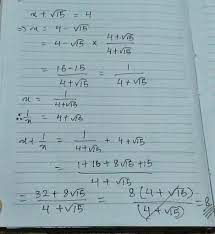 x + √15 = 4
⇒ x = 4 - √15
= 4 - √15 × (4+√15)/(4+√15)
= (16-15)/(4+√15) = 1/(4+√15)
x = 1/(4+√15)
∴ 1/x = 4+√15
x + 1/x = 1/(4+√15) + 4+√15
= (1+16+8√15+15)/(4+√15)
= (32+8√15)/(4+√15) = 8(4+√15)/(4+√15) = 8